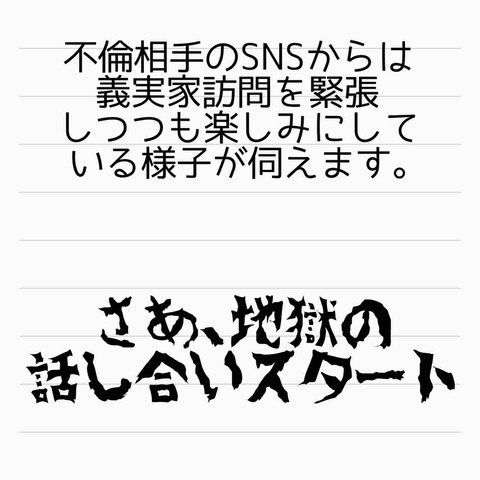 不倫相手のSNSからは
義実家訪問を緊張
しつつも楽しみにして
いる様子が伺えます。
さあ、地獄の
話し合いスタート